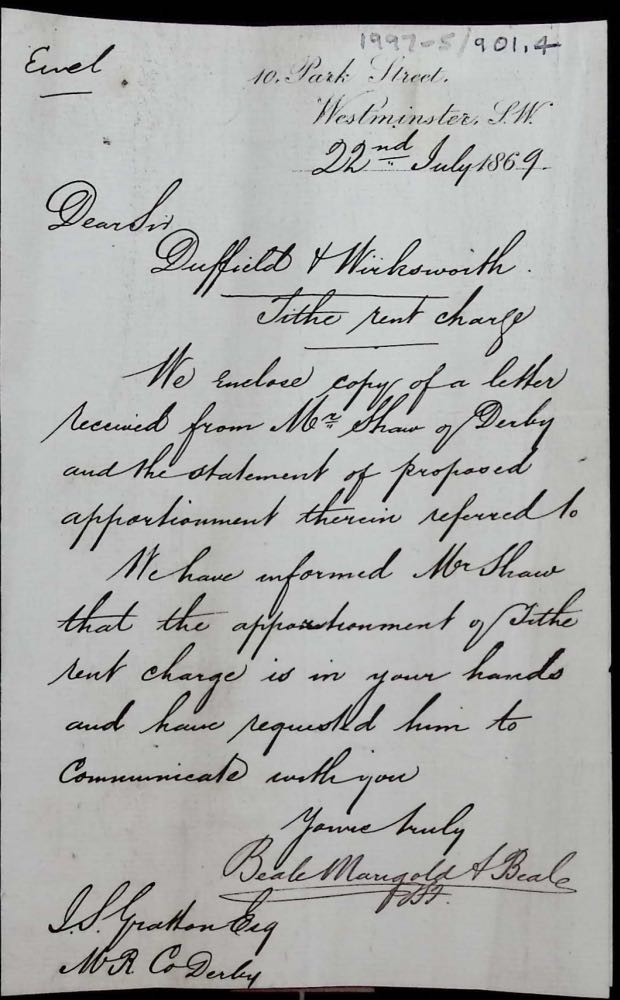 1997-5/901.4
Encl
10, Park Street,
Westminster, S.W.
22nd July 1869.
Dear Sir
Duffield & Wirksworth.
Tithe rent charge
We enclose copy of a letter
received from Mr Shaw of Derby
and the statement of proposed
apportionment therein referred to
We have informed Mr Shaw
that the apportionment of Tithe
rent charge is in your hands
and have requested him to
communicate with you
Yours truly
Beale Marigold & Beale
J.S. Gratton Esq
M R. Co Derby